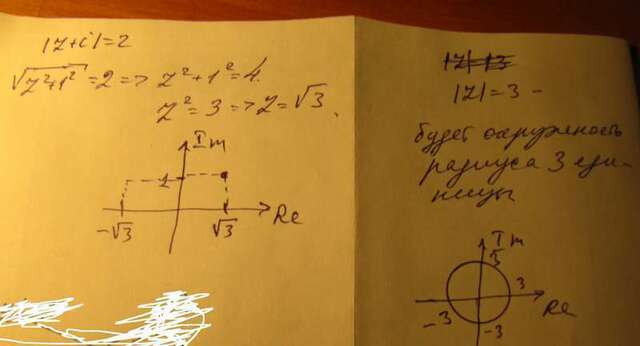 |z+i|=2
√z²+1² = 2 => z²+1²=4.
z²=3 => z=√3.
Im
1
-√3
√3
Re
|z| = 13
|z|=3 -
будет окружность
радиуса 3 еди-
ницы
Im
3
3
-3
-3
Re